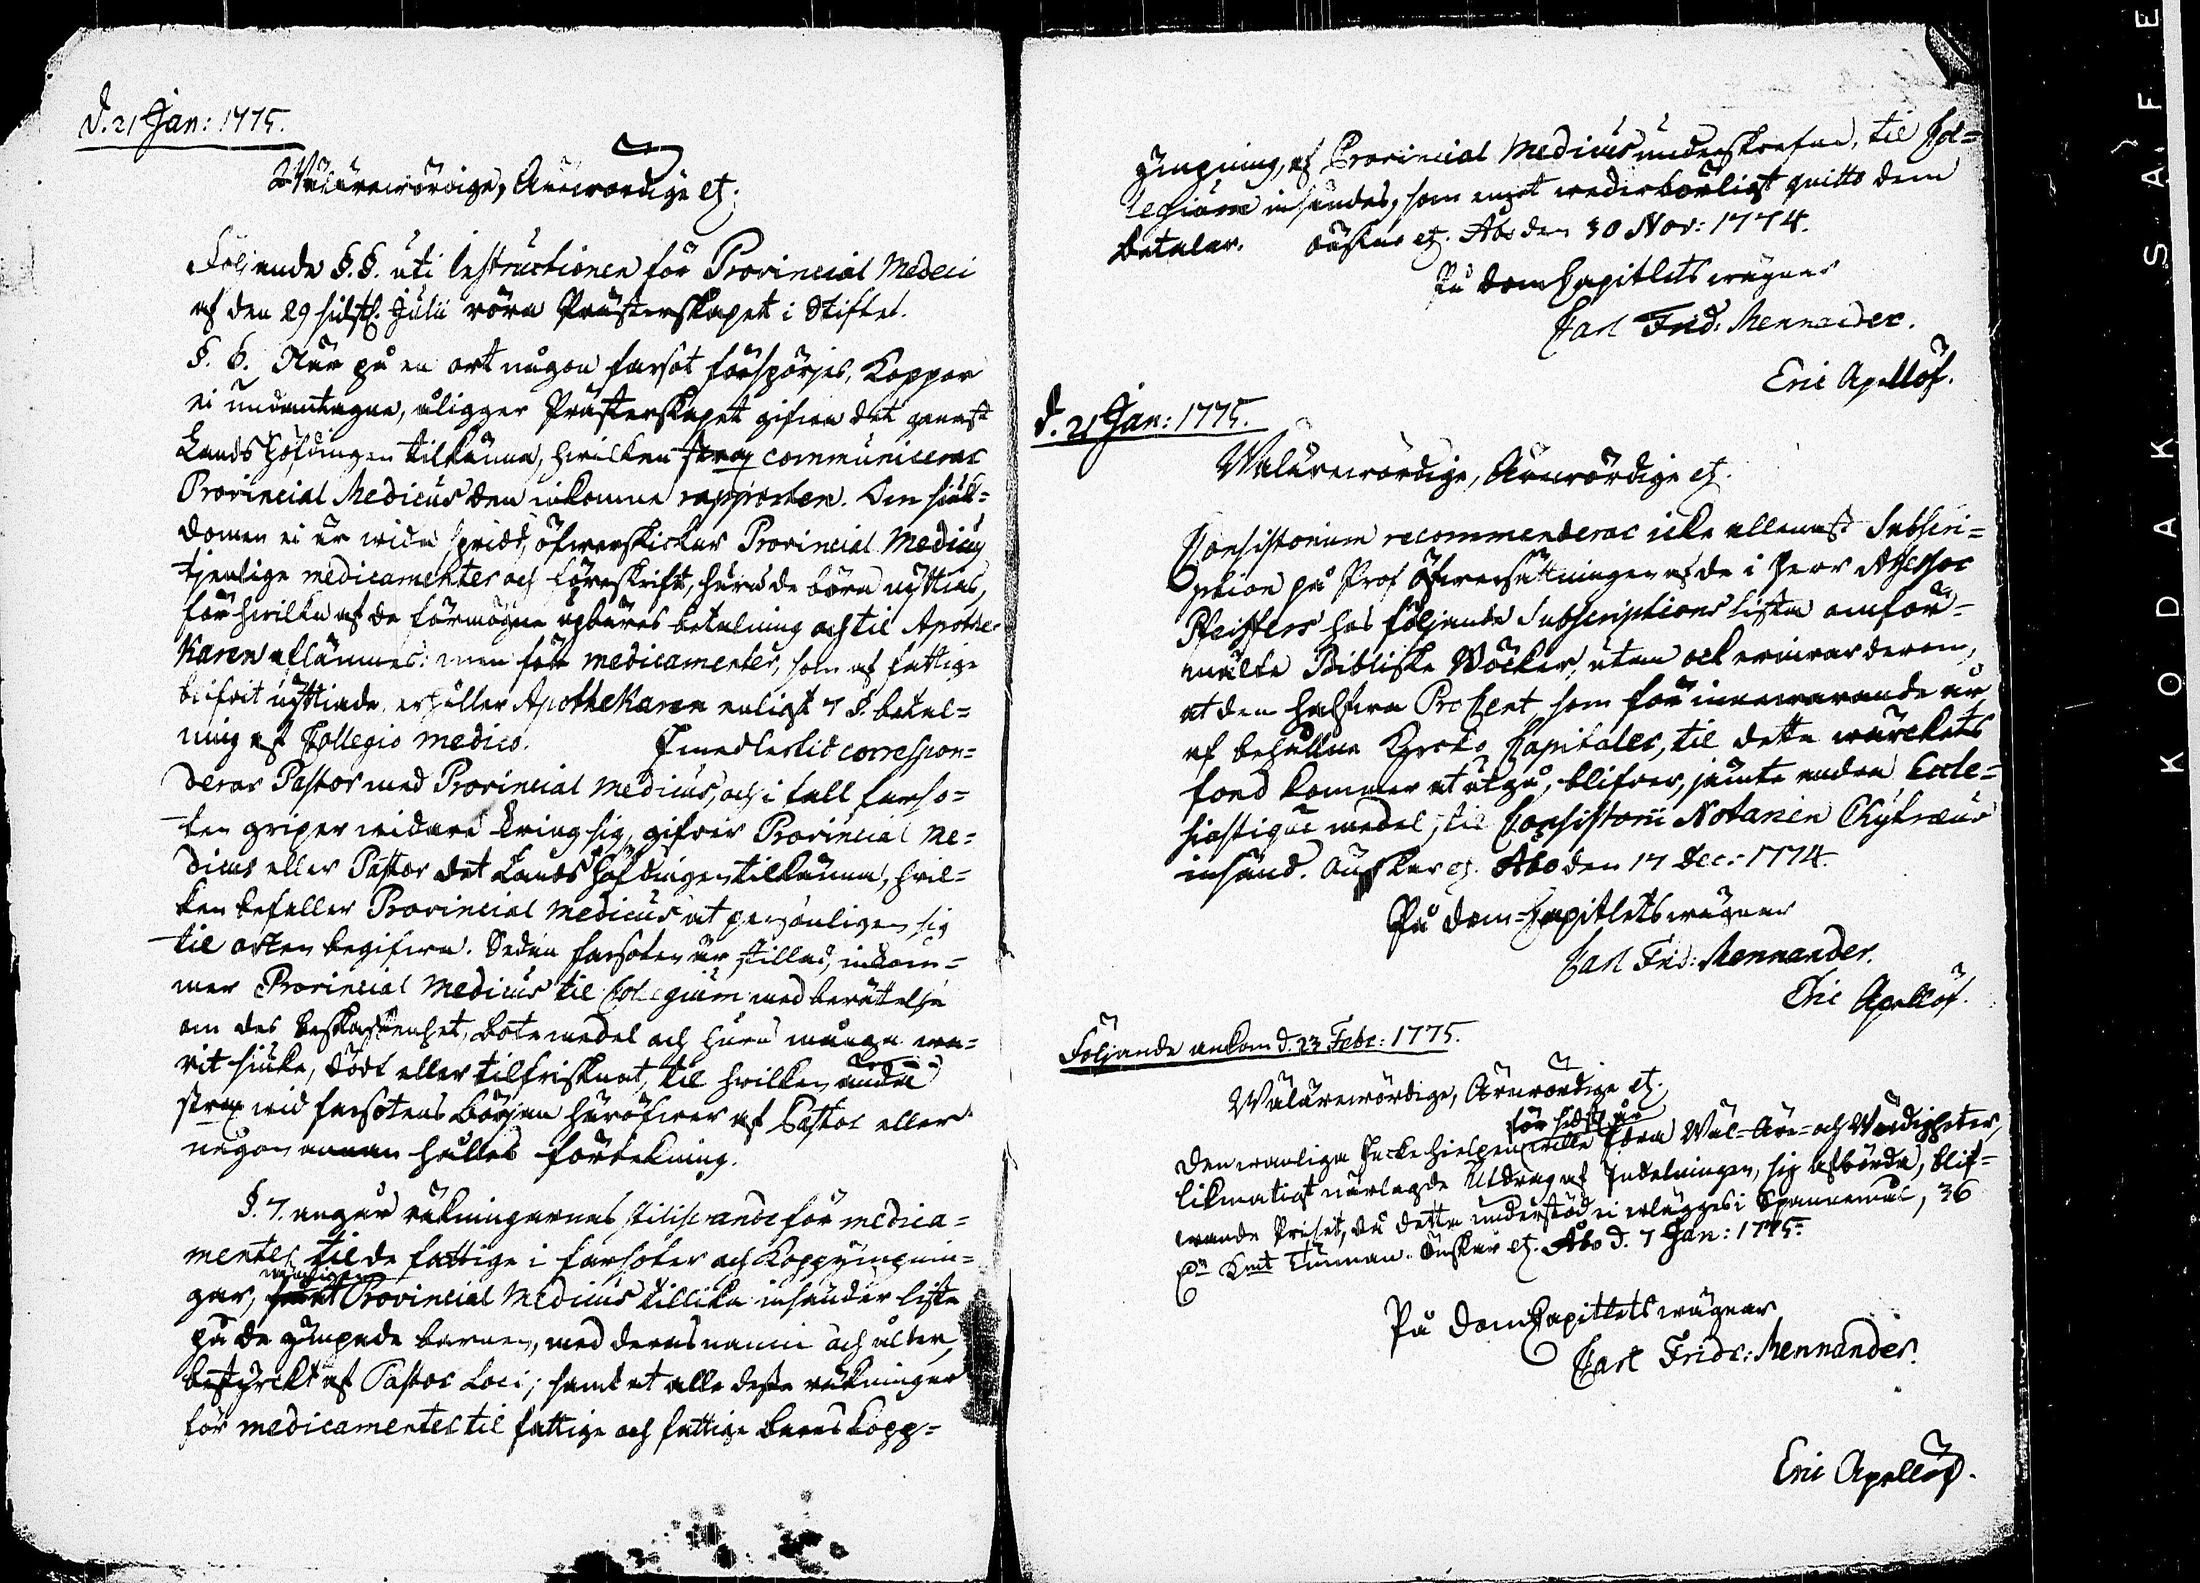 d. 21 Jan: 1775.
Wälärewördige, Ärewördige etz.
Följande §.§. uti Instructionen för Provincial Medici
af den 29 sidstl. Julii röra Prästerskapet i Stiftet.
§. 6. När på en ort någon farsot förspörjes, Koppor
ei undantagne, åligger Prästerskapet gifwa det genast
Landshöfdingen tilkänna, hwilken strax communicerar
Provincial Medicus den inkomne rapporten. Om siuk-
domen ei är wida spridd, öfwerskickar Provincial Medicus
tjenlige medicamenter och föreskrift, huru de böra nyttias,
för hwilka af de förmögne upbäres betalning och til Apothe-
karen aflämnes: men för medicamenter, som af fattige
blifwit nyttiade, erhåller Apothekaren enligt 7 §. betal-
ning af Collegio medico. Imedlertid correspon-
derar Pastor med Provincial Medicus, och i fall farso-
ten griper widare kring sig, gifwer Provincial Me-
dicus eller Pastor det Landshöfdingen tilkänna, hwil-
ken befaller Provincial Medicus at personligen sig
til orten begifwa. Sedan farsoten är stillad, inkom-
mer Provincial Medicus til Collegium med berättelse
om des beskaffenhet, botemedel och huru många wa-
rit siuka, dödt eller tilfrisknat, til hwilken ända
strax wid farsotens början häröfwer af Pastor eller
någon annan hålles förtekning.
§. 7. angår räkningarnas för medica-
menter til de fattige i farsoter och Koppympnin-
gar, Provincial Medicus tillika insänder lista
på de ympade barnen, med deras namn och ålder,
bestyrkt af Pastor Loci; samt at alla desse räkningar
för medicamenter til fattige och fattige barns kopp-
ympning, af Provincial Medicus underskrefne, til Col-
legium insändes, som engot wederbörligt quitto dem
betalar. Önskar etz. Åbo den 30 Nov: 1774.
På DomCapitlets wägnar
Carl Frid: Mennander.
Eric Apellöf.
d. 21 Jan: 1775.
Wälärewördige, Ärewördige etz.
Consistorium recommenderar icke allenast Subscri-
ption på Prof öfwersättningen af de i Herr Assessor
Pfeiffers hos följande Subscriptions lista omför-
mälte Bibliske Böcker, utan ock erinrar derom,
at den halfwa ProCent som för innewarande år
af behållne Kyrko Capitaler, til detta wärckets
fond kommer at utgå, blifwer, jämte andra Eccle-
siastique medel, til Consistorii Notarien Chytræus
insänd. Önskar etz. Åbo den 17 Dec: 1774.
På Dom-Capitlets wägnar
Carl Frid: Mennander.
Eric Apellöf.
Följande ankom d. 23 Febr: 1775.
Wälärewördige, Ärewördige etz.
för sidstl. år
Den wanliga Hielpen wille Wäl-Äre- och Wördigheter,
likmatigt närlagde Utdrag af Indelningen, sig afbörda, blif-
wande Priset, då detta understöd ei erlägges i Spannemål, 36
Kmt Tunnan. Önskar etz. Åbo d. 7 Jan: 1775.
På DomCapitlets wägnar
Carl Fridr: Mennander.
Eric Apellöf.
KODAK SAFE